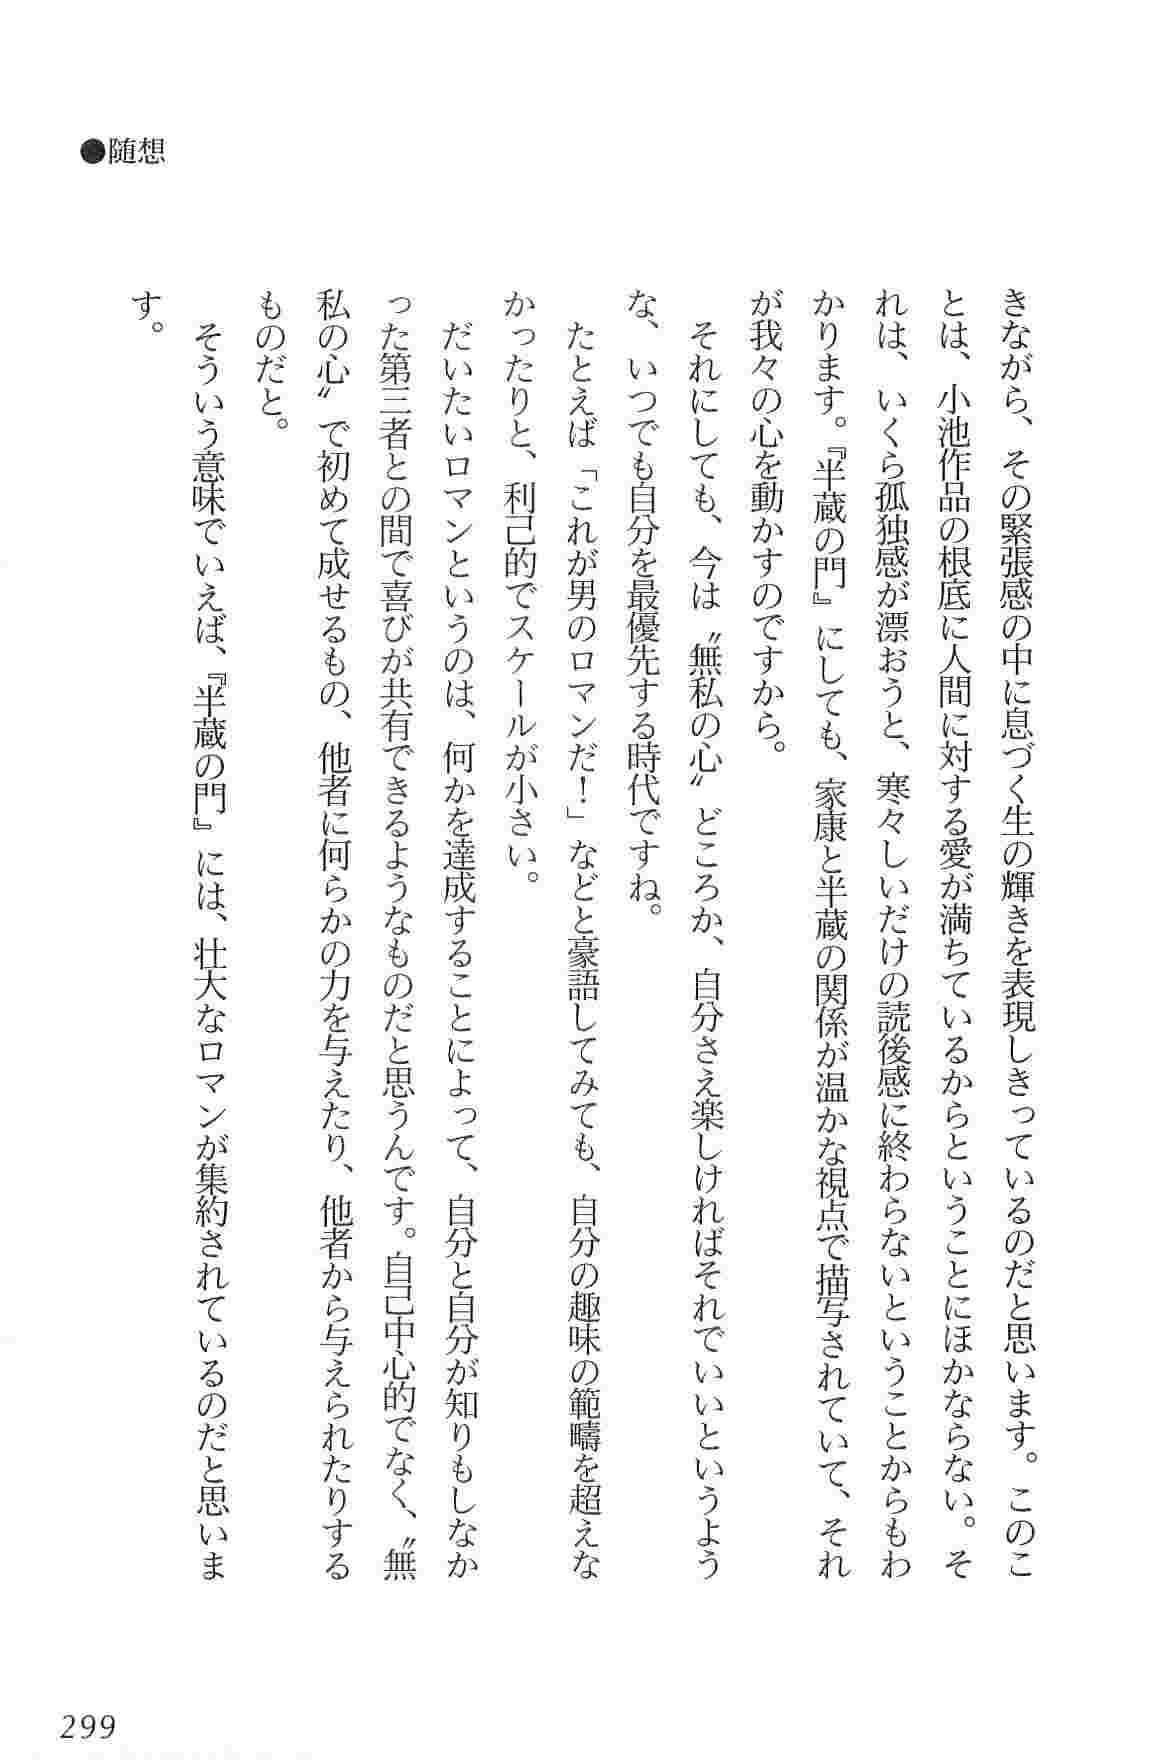 ●随想
きながら、その緊張感の中に息づく生の輝きを表現しきっているのだと思います。このこ
とは、小池作品の根底に人間に対する愛が満ちているからということにほかならない。そ
れは、いくら孤独感が漂おうと、寒々しいだけの読後感に終わらないということからもわ
かります。『半蔵の門』にしても、家康と半蔵の関係が温かな視点で描写されていて、それ
が我々の心を動かすのですから。
それにしても、今は〝無私の心〟どころか、自分さえ楽しければそれでいいというよう
な、いつでも自分を最優先する時代ですね。
たとえば「これが男のロマンだ！」などと豪語してみても、自分の趣味の範疇を超えな
かったりと、利己的でスケールが小さい。
だいたいロマンというのは、何かを達成することによって、自分と自分が知りもしなか
った第三者との間で喜びが共有できるようなものだと思うんです。自己中心的でなく、〝無
私の心〟で初めて成せるもの、他者に何らかの力を与えたり、他者から与えられたりする
ものだと。
そういう意味でいえば、『半蔵の門』には、壮大なロマンが集約されているのだと思いま
す。
299